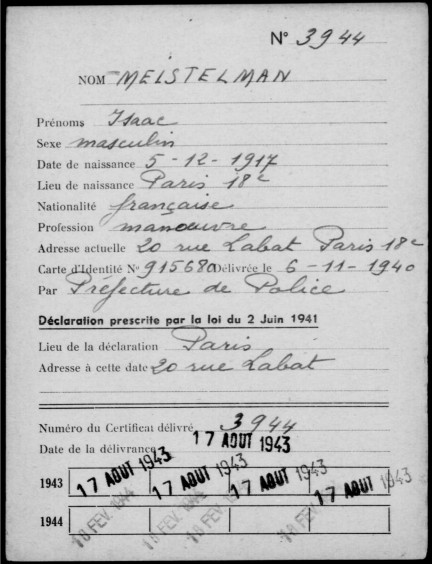 N° 3944
NOM MEISTELMAN
Prénoms Isaac
Sexe masculin
Date de naissance 5-12-1917
Lieu de naissance Paris 18e
Nationalité française
Profession manœuvre
Adresse actuelle 20 rue Labat Paris 18e
Carte d'Identité N° 915680 Délivrée le 6-11-1940
Par Préfecture de Police
Déclaration prescrite par la loi du 2 Juin 1941
Lieu de la déclaration Paris
Adresse à cette date 20 rue Labat
Numéro du Certificat délivré 3944
Date de la délivrance 17 AOUT 1943
1943 17 AOUT 1943 17 AOUT 1943 17 AOUT 1943 17 AOUT 1943
1944 18 FEV. 1944 18 FEV. 18 FEV. 18 FEV.